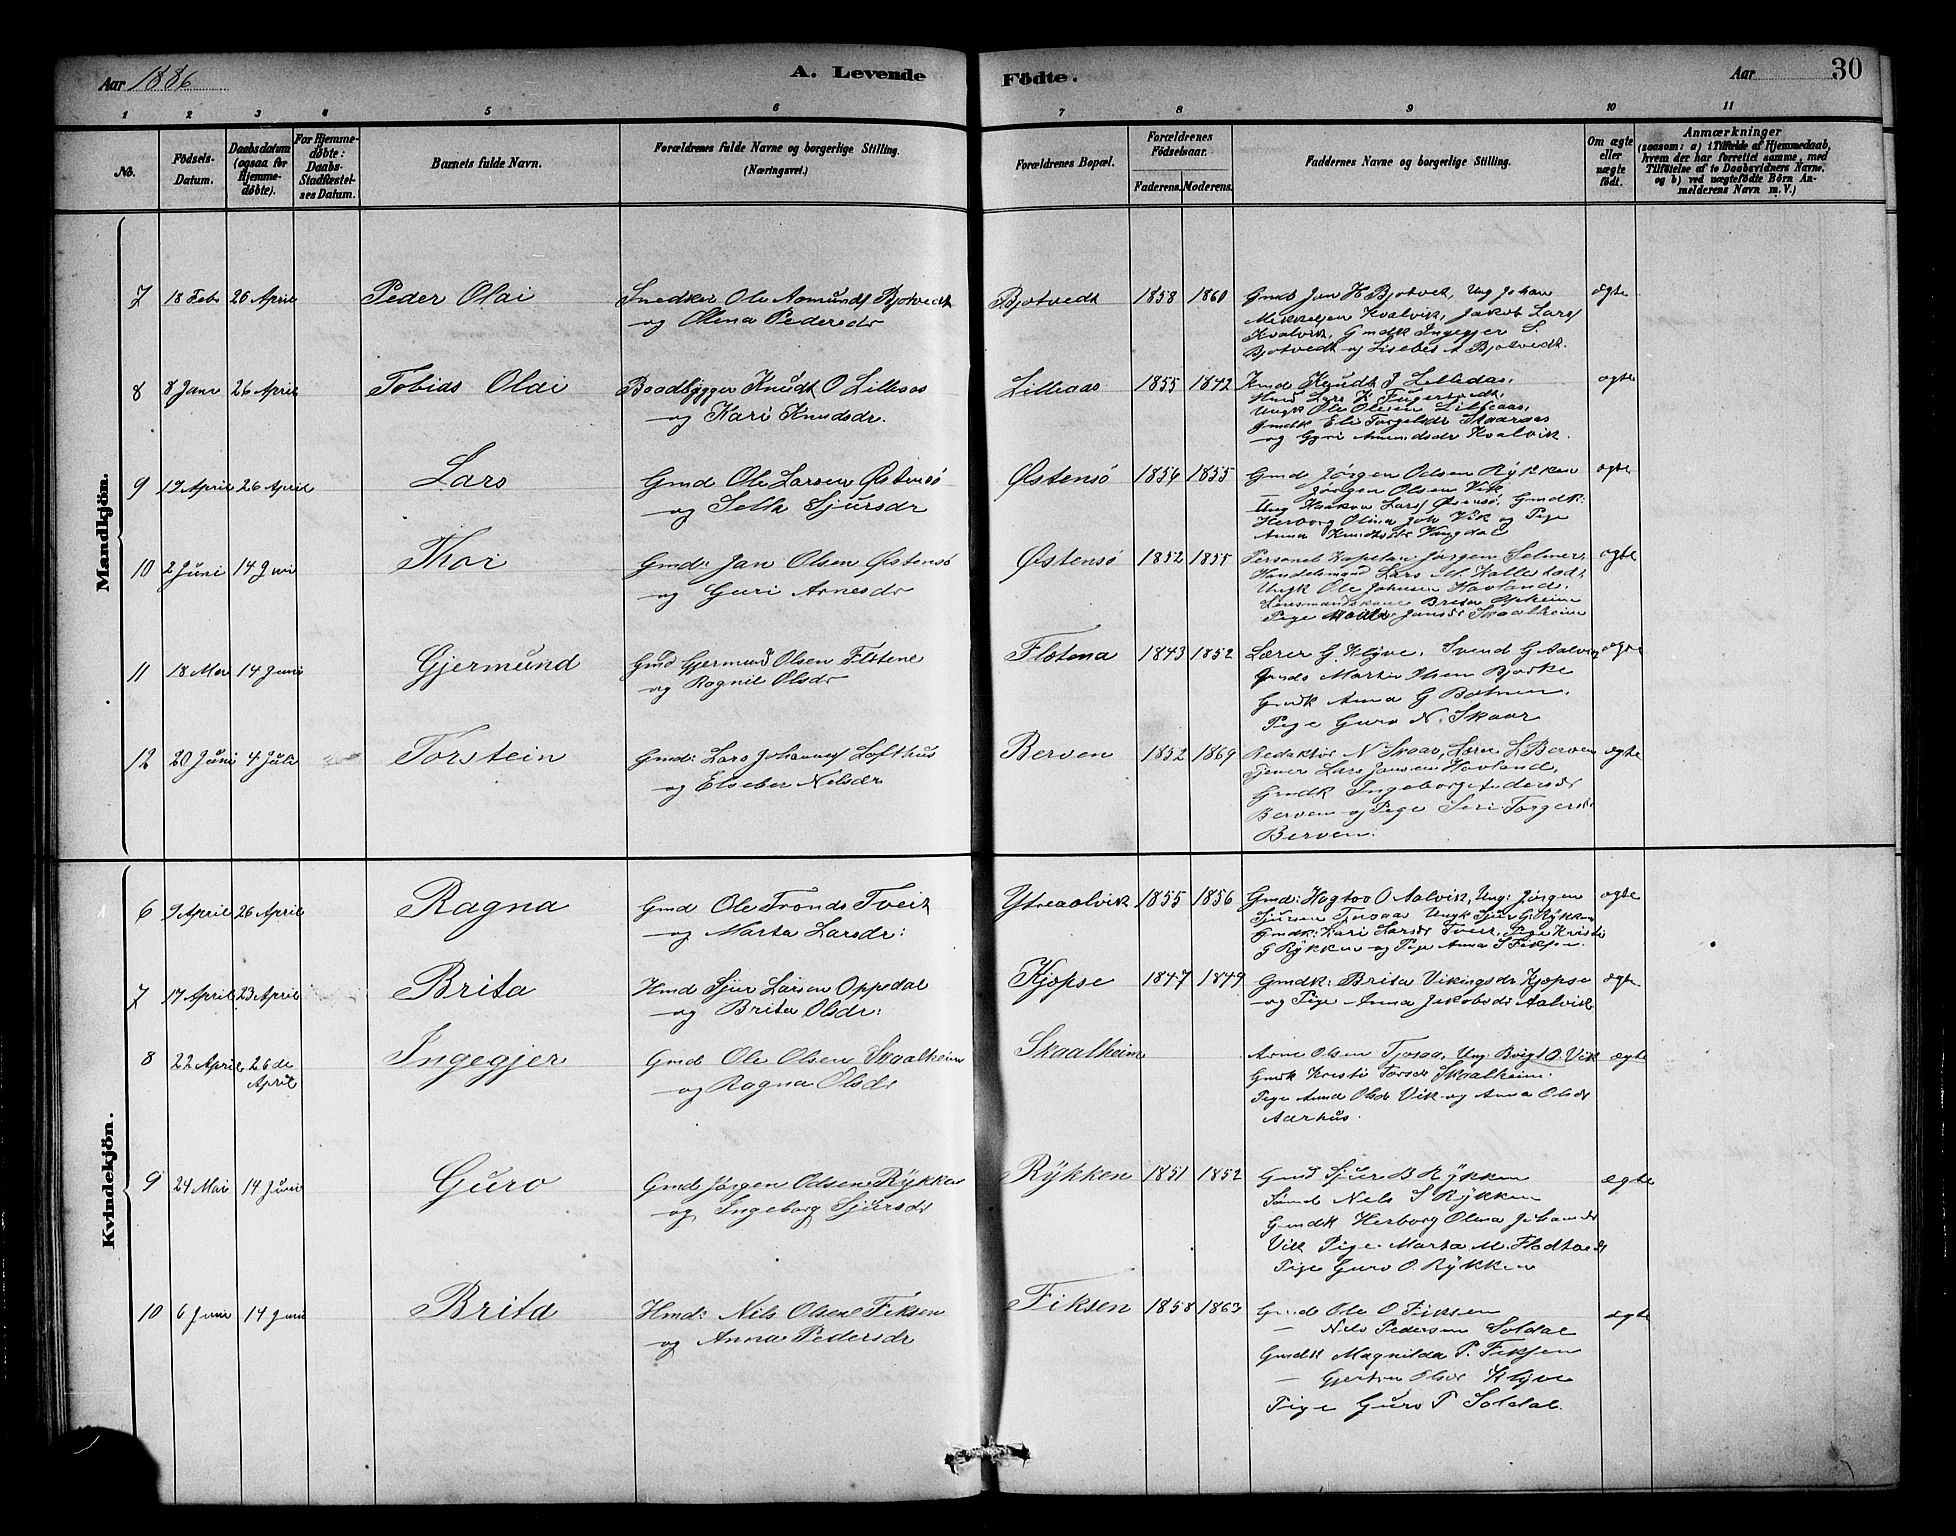 Aar 1886
A. Levende Födte.
Aar
30
1 2 3 4 5 6 7 8 9 10 11
No.
Födsels-Datum.
Daabsdatum (ogsaa for Hjemmedøbte).
For Hjemmedøbte: Daabs Stadfæstelses Datum.
Barnets fulde Navn.
Forældrenes fulde Navne og borgerlige Stilling.
(Næringsvei.)
Forældrenes Bopæl.
Forældrenes Födselsaar.
Faderens. Moderens.
Faddernes Navne og borgerlige Stilling.
Om ægte eller uægte født.
Anmærkninger
(saasom: a) i Tilfælde af Hjemmedaab, hvem der har forrettet samme, med Tilföielse af to Daabsvidners Navne, og b) ved uægtefödte Börn Anmelderens Navn m. V.)
Mandkjön.
7 18 Feb 26 April Peder Olai Snedker Ole Aamunds Bjotvedt Bjotvedt 1858 1860 Gmd Jon H Bjotvet, Ung Johan ægte
og Olena Pedersdr Mikkelsen Kvalvik, Jakob Lars
Kvalvik, Gmdk Ingegjer S.
Bjotvedt og Lisebet A Bjotvedt.
8 8 Janr 26 April Tobias Olai Baadbygger Knudt O Lilleaas Lilleaas 1855 1842 Kmd Knudt J Lilleaas, ægte
og Kari Knudsdr. Hmd Lars K
Ungk Ole Olesen Lilleaas,
Gmdk Eli Torgelsdr Skaaraas
og Gyri Amundsdr Kvalvik.
9 19 April 26 April Lars Gmd Ole Larsen Østensø Østensø 1854 1855 Gmd Jørgen Odsen Rykken ægte
og Sella Sjursdr — Jørgen Olsen Vik
Ung Haakon Lars Østensø, Gmdk:
Herborg Olina Joh Vik og Pige
Anna Knudsdr
10 2 Juni 14 Juni Thor Gmd: Jan Olsen Østensø Østensø 1852 1855 Personel Kapelan Jørgen Selmer, ægte
og Guri Arnesdr Handelsmand Lars M Kallestad,
Ungk Ole Johnsen Havland.
Lensmandskone Brita Opheim
Pige Jansdr Skaalheim
11 18 Mai 14 Juni Gjermund Gmd Gjermund Olsen Flotene Flotena 1843 1852 Lærer G. Klyve. Svend G. Aalvig ægte
og Ragnil Olsdr Gmds Martin Olsen Bjørke
Gmdk Anna G Botnen.
Pige Guro N. Skaar
12 20 Juni 4 Juli Torstein Gmd: Lars Johannes Lofthus Berven 1852 1869 Redaktør N Skaar, Lærer L Berven ægte
og Elseber Nilsdr Tjener Lars Jansen Havland,
Gmdk Ingeborg Andersdr
Berven og Pige Siri Torgersdr
Berven.
Kvindekjön.
6 9 April 26 April Ragna Gmd Ole Tronds Tveit Ytreaalvik 1855 1856 Gmd: Hagtoo O Aalvik, Ung: Jørgen ægte
og Marta Larsdr: Sjursen Tjosaas Ungk Sjur G. Rykken
Gmdk: Kari Larsdr Tveit, Pige Kristi
G Rykken og Pige Anna S Fiksen.
7 17 April 23 April Brita Hmd Sjur Larsen Oppedal Kjøpse 1847 1849 Gmdk: Brita Vikingsdr Kjøpse ægte
og Brita Olsdr: og Pige Anna Jakobsdr Aalvik
8 22 April 26 de April Ingegjer Gmd Ole Olsen Skaalheim Skaalheim Arne Olsen Tjosaas, Ung: Brigt O. Vik ægte
og Ragna Olsdr Gmdk Kristi Torsdr Skaalheim.
Pige Anna Olsdr Vik og Anna Olsdr
Aarhus.
9 24 Mai 14 Juni Guro Gmd Jørgen Odsen Rykken Rykken 1851 1852 Gmd Sjur B Rykken ægte
og Ingeborg Sjursdr Sønd Nels S Rykken
Gmdk Herborg Olina Johansdr
Vik Pige. Marta M.
Pige Guro O. Rykken
10 6 Juni 14 Juni Brita Hmd: Nils Olsen Fiksen Fiksen 1858 1863 Gmd Ole O Fiksen ægte
og Anna Pedersdr — Nels Pedersen Soldal
Gmdk Magnilda P. Fiksen
— Gjertru Olsdr Klyve
Pige Guro P Soldal.